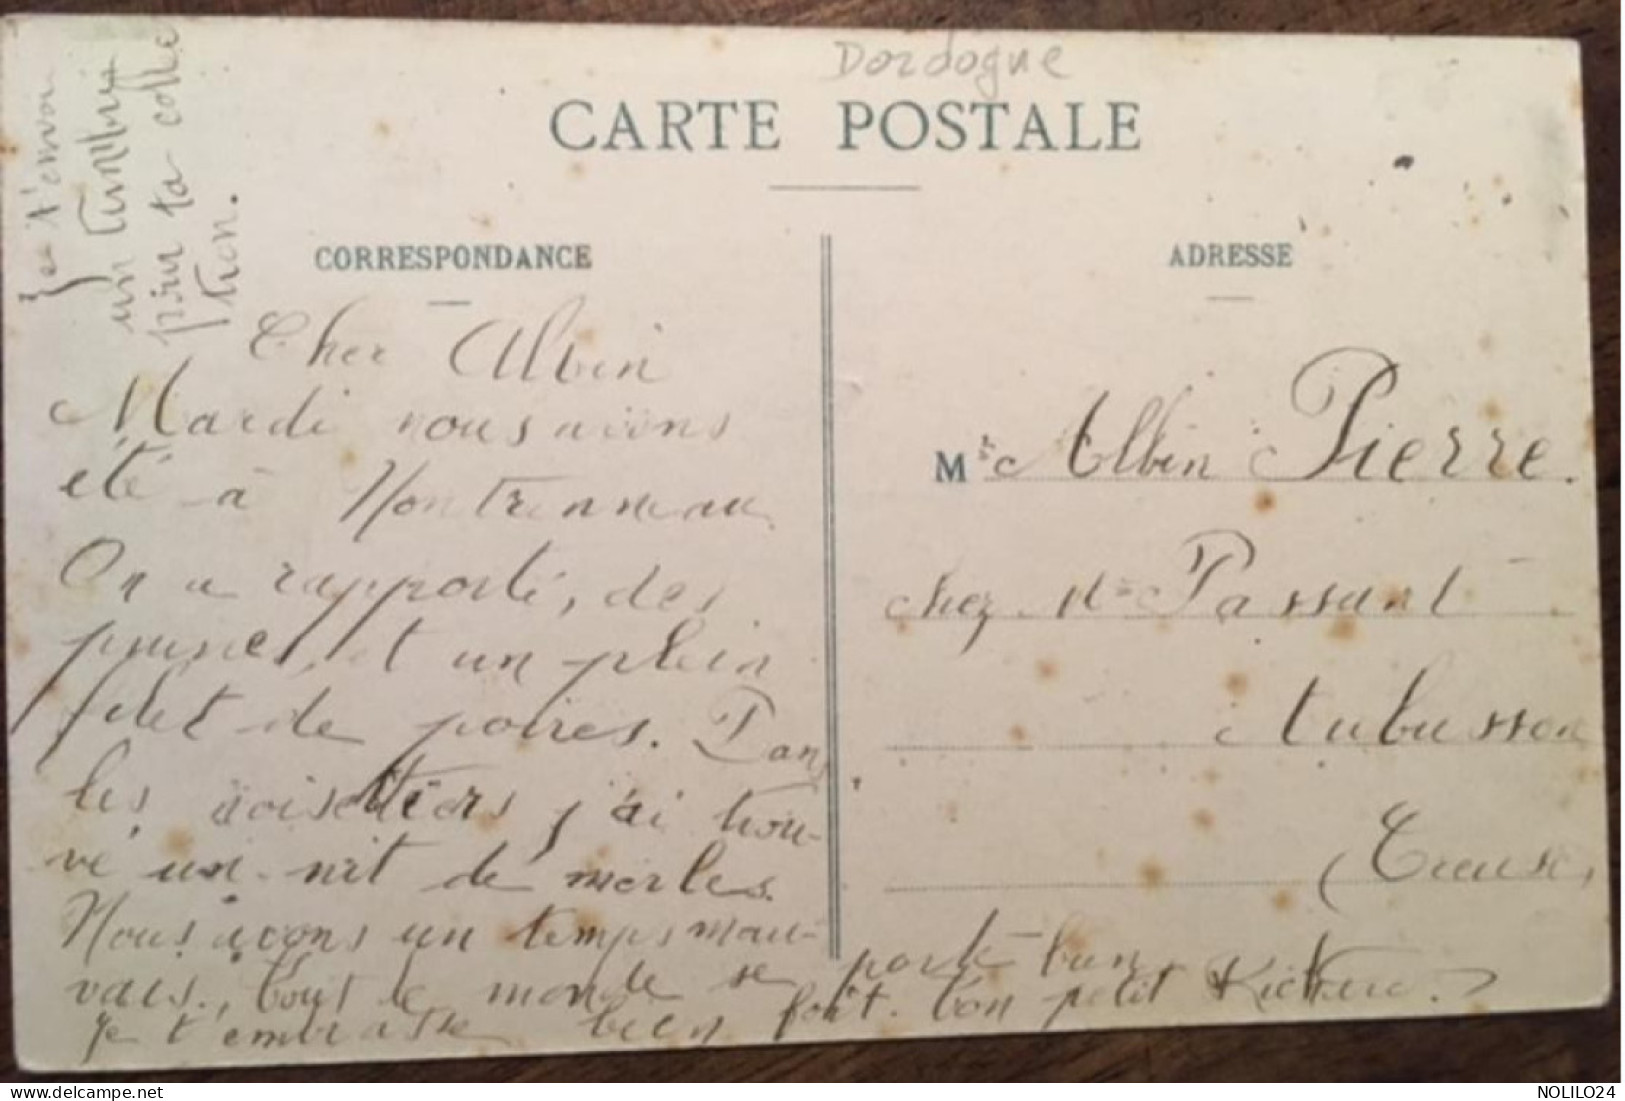 Dordogne
CARTE POSTALE
Je t'envoi
un timbre
pour ta colle
ction.
CORRESPONDANCE
Cher Albin
Mardi nous avions
été à
On a rapporté, des
prunes, et un plein
filet de poires. Dans
les noisettiers j'ai trou-
vé un nit de merles.
Nous avons un temps mau-
vais., tout le monde se porte bien
je t'embrasse bien fort. ton petit
ADRESSE
Mr Albin Pierre.
chez Mr Passant
Aubusson
Creuse
NOLILO24